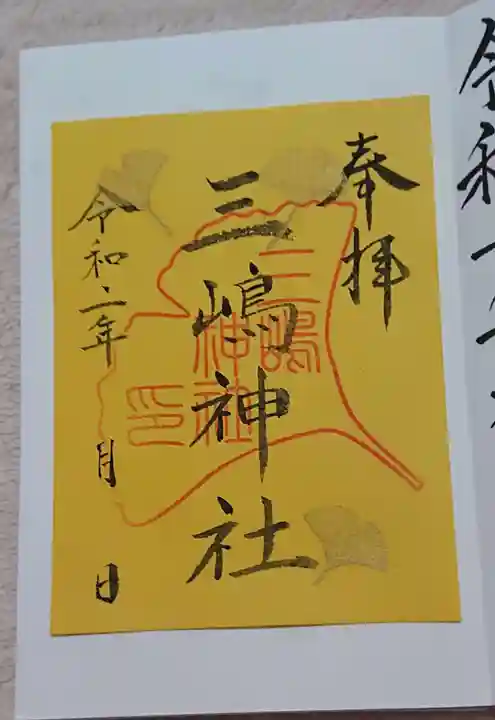 奉拝
三嶋神社
三嶋
神社
印
令和二年 月 日
令和二年